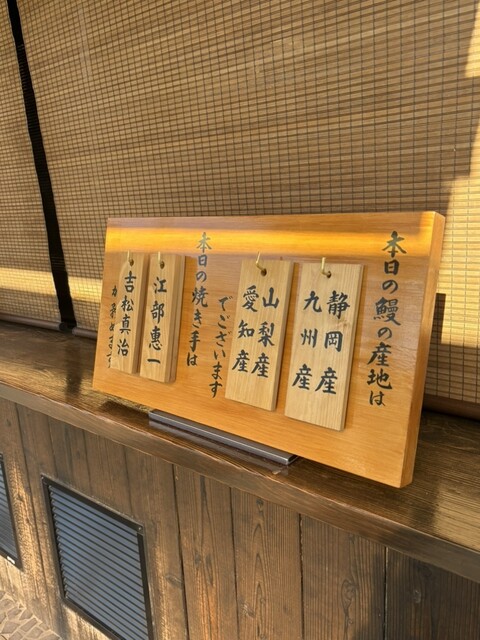 本日の鰻の産地は
静岡産
九州産
山梨産
愛知産
でございます
本日の焼き手は
江部惠一
吉松真治